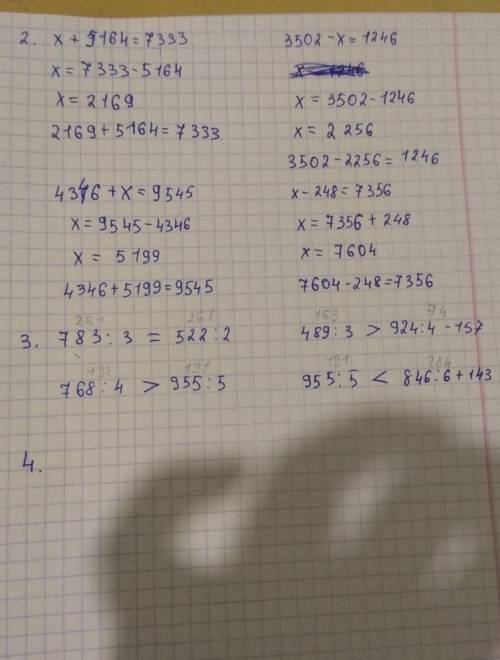 2. x + 5164 = 7333
x = 7333 - 5164
x = 2169
2169 + 5164 = 7333
4346 + x = 9545
x = 9545 - 4346
x = 5199
4346 + 5199 = 9545
3502 - x = 1246
x = 3502 - 1246
x = 2 256
3502 - 2256 = 1246
x - 248 = 7356
x = 7356 + 248
x = 7604
7604 - 248 = 7356
261 261
3. 783 : 3 = 522 : 2
163 74
489 : 3 > 924 : 4 - 157
192 191
768 : 4 > 955 : 5
191 284
955 : 5 < 846 : 6 + 143
4.